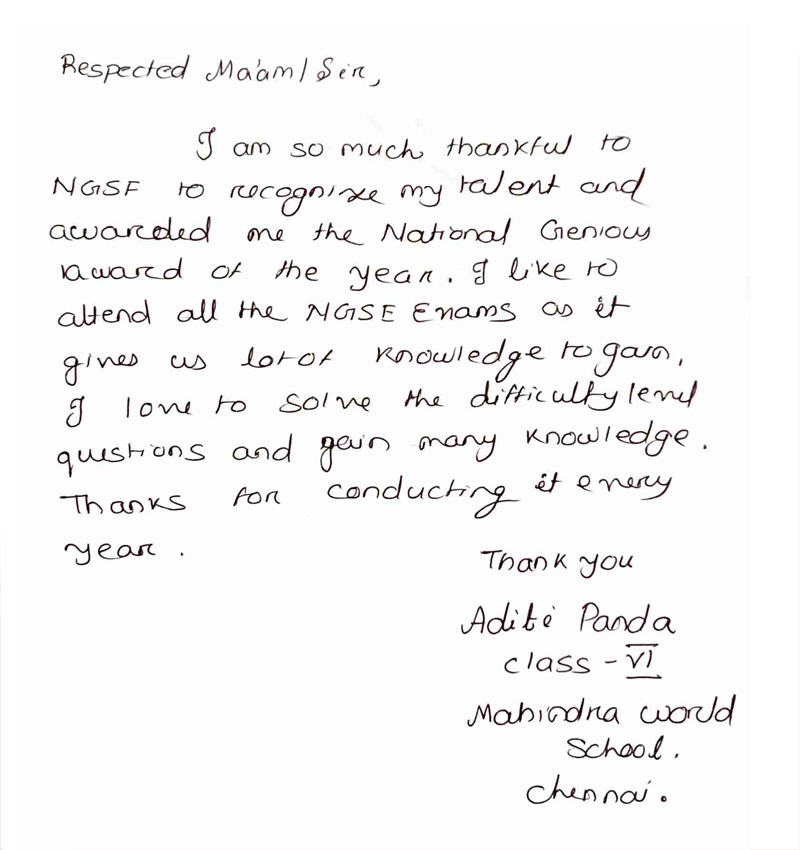 Respected Ma'am/Sir,
I am so much thankful to
NGSF to recognize my talent and
awarded me the National Genious
award of the year. I like to
attend all the NGSE Exams as it
gives us lot of knowledge to gain,
I love to solve the difficulty level
questions and gain many knowledge.
Thanks for conducting it every
year.
Thank you
Aditi Panda
class - VI
Mahindra world
School.
Chennai.